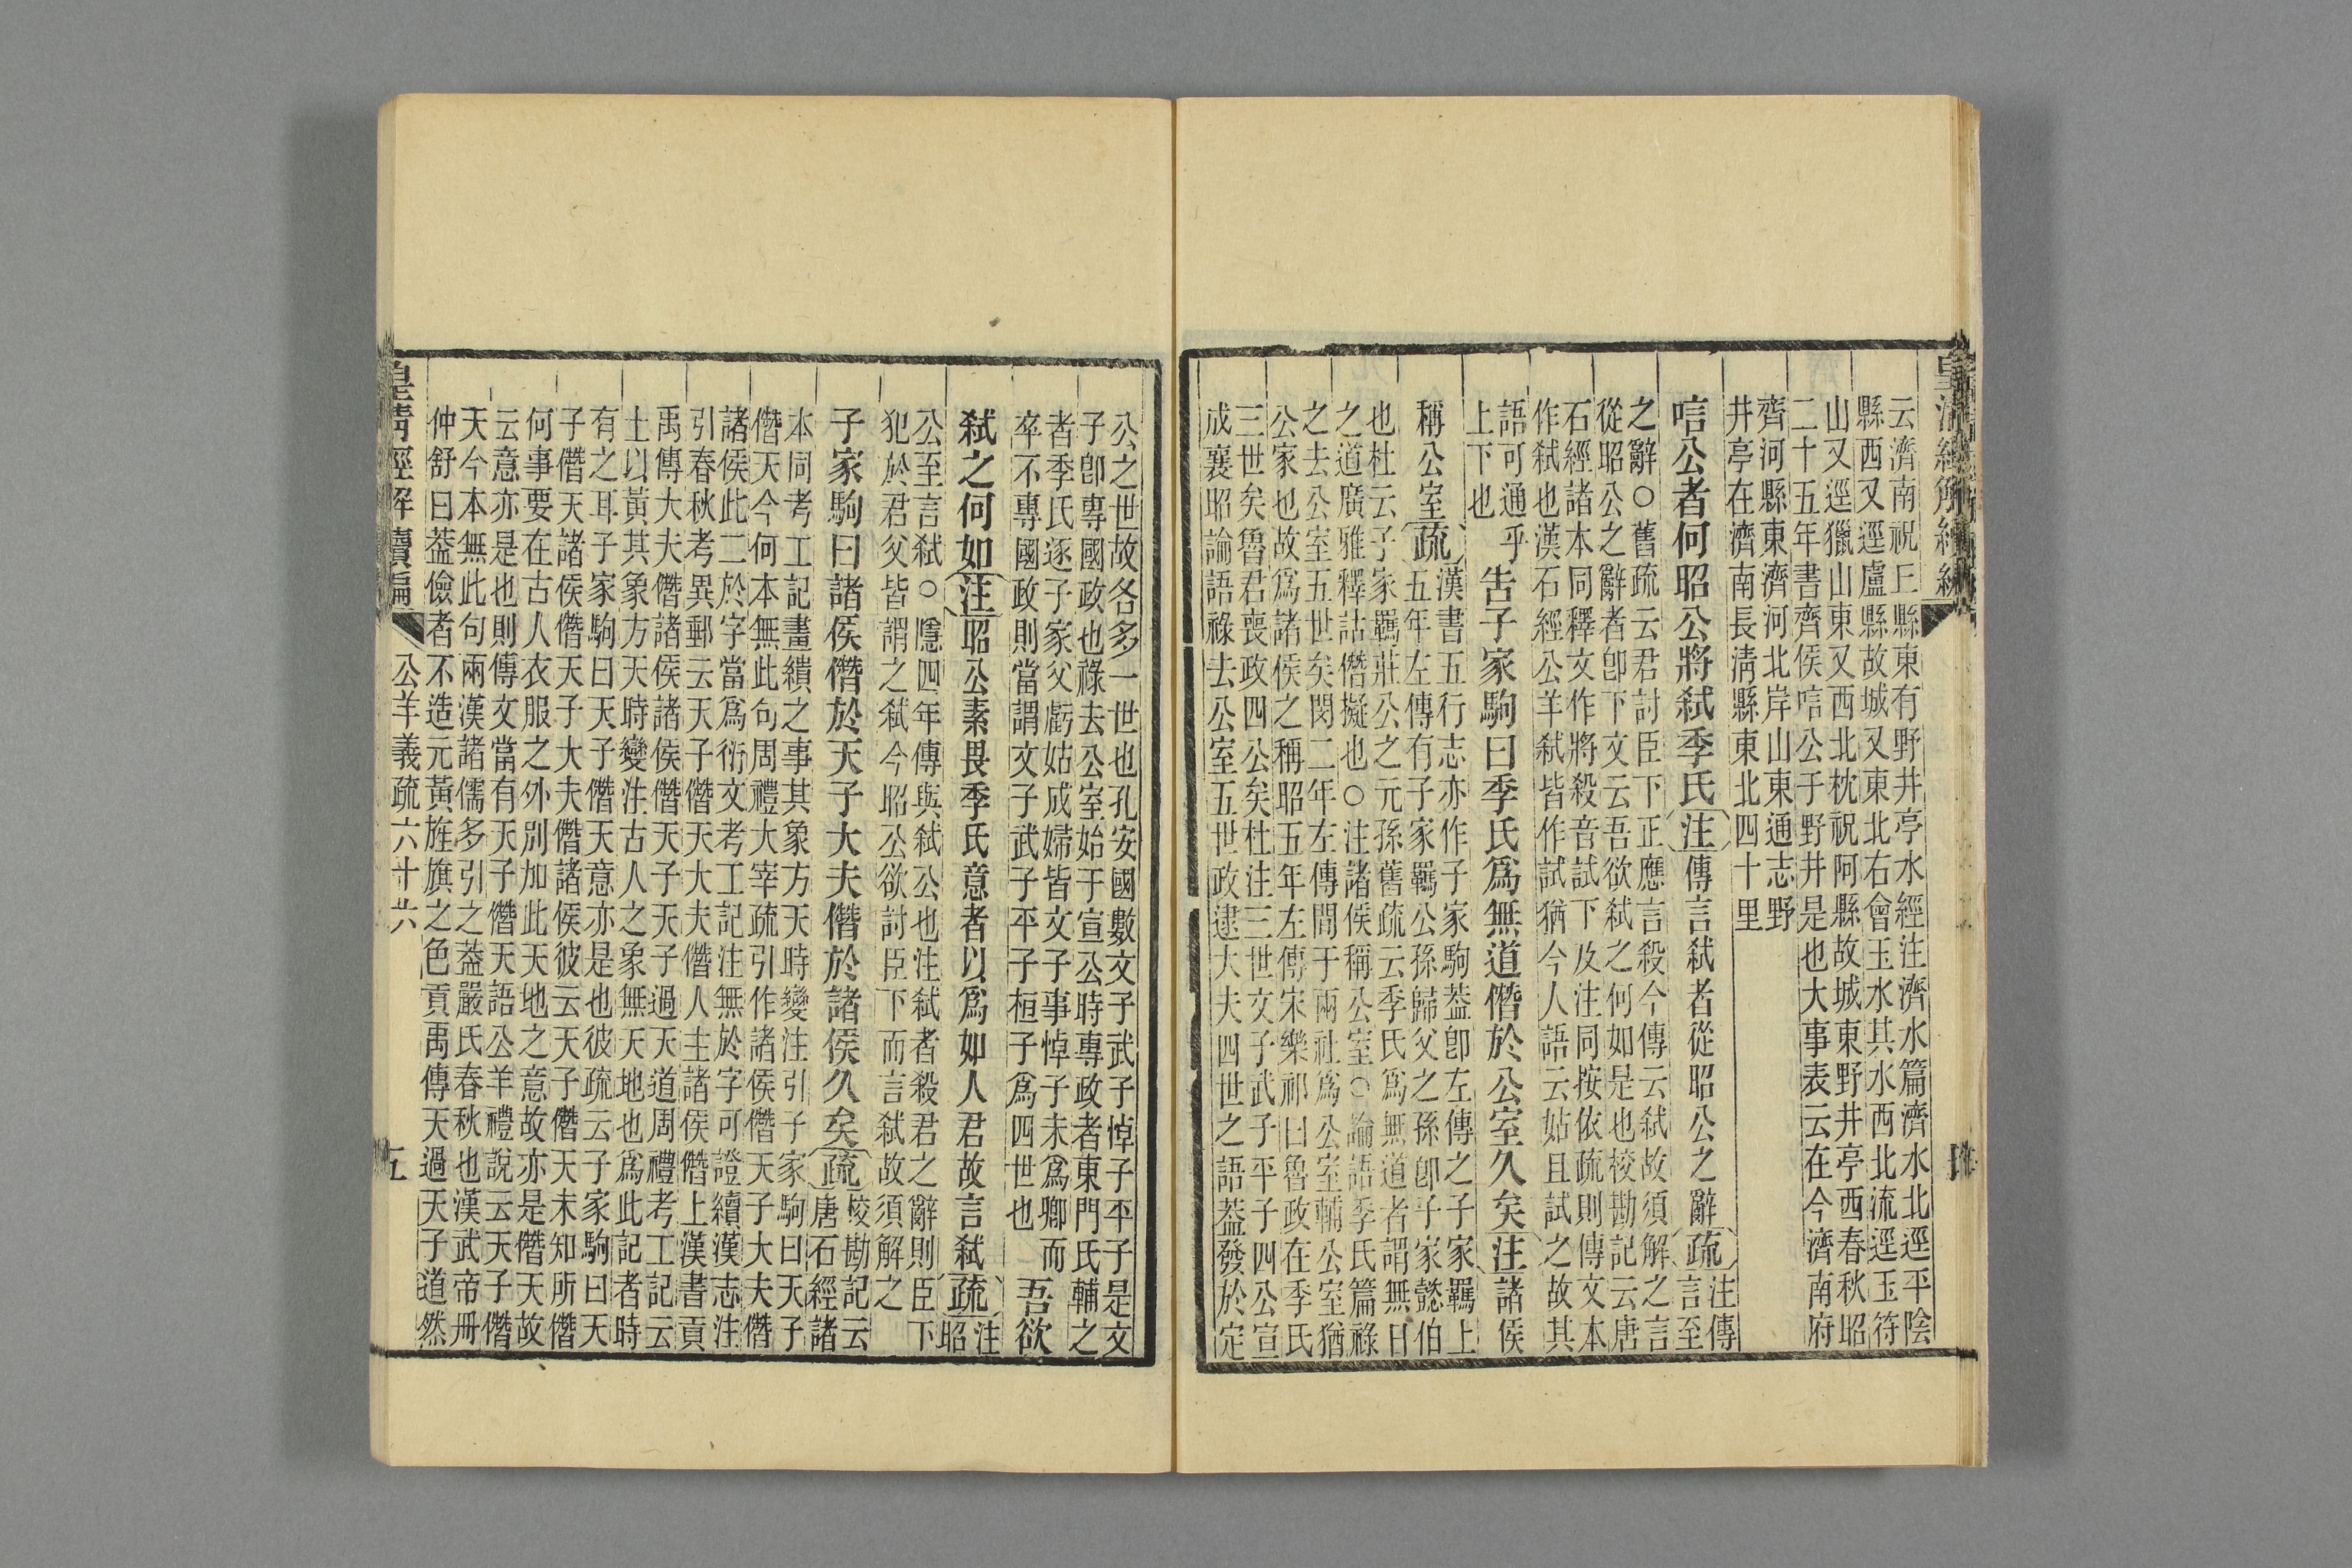 云濟南祝丘縣東有野井亭水經注濟水篇濟水北逕平陰
縣西又逕盧縣故城又東北右會玉水其水西北流逕玉符
山又逕獵山東又西北枕祝阿縣故城東野井亭西春秋昭
二十五年書齊侯唁公于野井是也大事表云在今濟南府
齊河縣東濟河北岸山東通志野
井亭在濟南長淸縣東北四十里
唁公者何昭公將弑季氏注傳言弑者從昭公之辭疏注傳
言至
之辭○舊疏云君討臣下正應言殺今傳云弑故須解之言
從昭公之辭者卽下文云吾欲弑之何如是也校勘記云唐
石經諸本同釋文作將殺音試下及注同按依疏則傳文本
作弑也漢石經公羊弑皆作試猶今人語云姑且試之故其
語可通乎
上下也
告子家駒曰季氏爲無道僭於公室久矣注諸侯
稱公室疏漢書五行志亦作子家駒葢卽左傳之子家羈上
五年左傳有子家羈公孫歸父之孫卽子家懿伯
也杜云子家羈莊公之元孫舊疏云季氏爲無道者謂無日
之道廣雅釋詁僭擬也○注諸侯稱公室○論語季氏篇祿
之去公室五世矣閔二年左傳間于兩社爲公室輔公室猶
公家也故爲諸侯之稱昭五年左傳宋樂祁曰魯政在季氏
三世矣魯君喪政四公矣杜注三世文子武子平子四公宣
成襄昭論語祿去公室五世政逮大夫四世之語葢發於定
公之世故各多一世也孔安國數文子武子悼子平子是文
子卽專國政也祿去公室始于宣公時專政者東門氏輔之
者季氏逐子家父虧姑成婦皆文子事悼子未爲卿而
卒不專國政則當謂文子武子平子桓子爲四世也
吾欲
弑之何如注昭公素畏季氏意者以爲如人君故言弑疏注
昭
公至言弑○隱四年傳與弑公也注弑者殺君之辭則臣下
犯於君父皆謂之弑今昭公欲討臣下而言弑故須解之
子家駒曰諸侯僭於天子大夫僭於諸侯久矣疏校勘記云
唐石經諸
本同考工記畫繢之事其象方天時變注引子家駒曰天子
僭天今何本無此句周禮大宰疏引作諸侯僭天子大夫僭
諸侯此二於字當爲衍文考工記注無於字可證續漢志注
引春秋考異郵云天子僭天大夫僭人主諸侯僭上漢書貢
禹傳大夫僭諸侯諸侯僭天子天子過天道周禮考工記云
土以黃其象方天時變注古人之象無天地也爲此記者時
有之耳子家駒曰天子僭天意亦是也彼疏云子家駒曰天
子僭天諸侯僭天子大夫僭諸侯彼云天子僭天未知所僭
何事要在古人衣服之外別加此天地之意故亦是僭天故
云意亦是也則傳文當有天子僭天語公羊禮說云天子僭
天今本無此句兩漢諸儒多引之葢嚴氏春秋也漢武帝冊
仲舒曰葢儉者不造元黃旌旗之色貢禹傳天過天子道然
皇清經解續編 公羊義疏六十六 五